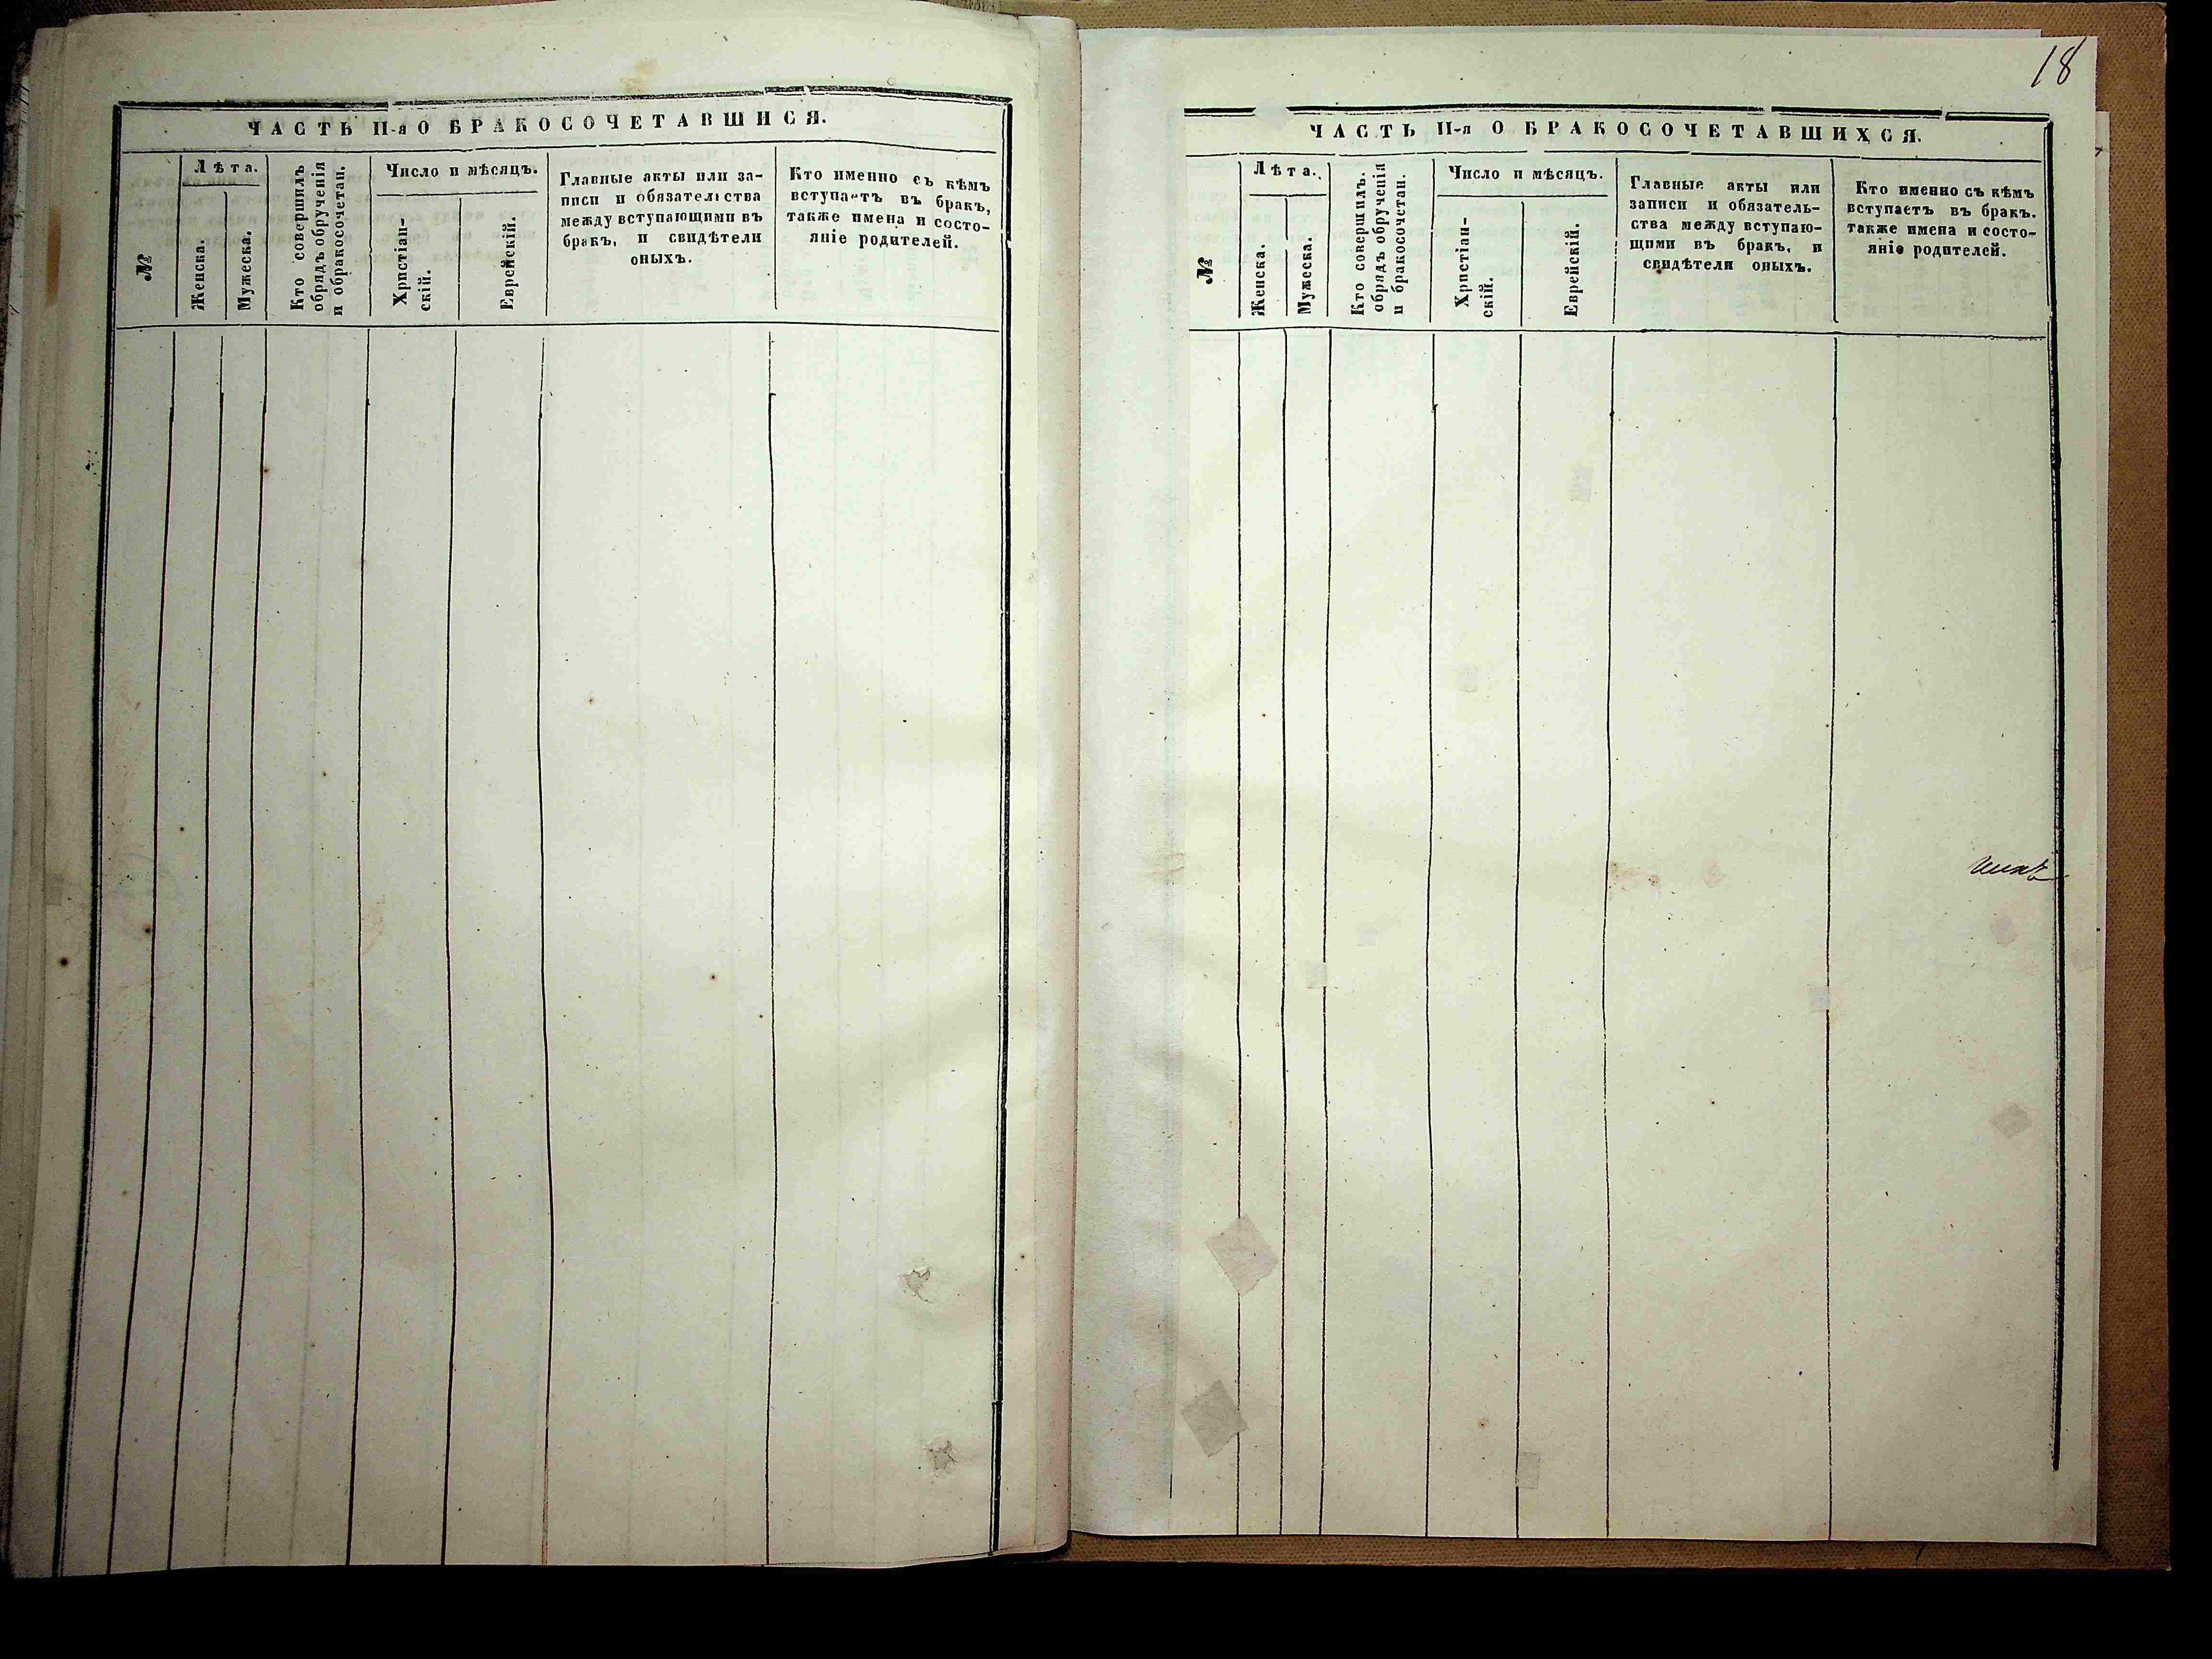 ЧАСТЬ II-я О БРАКОСОЧЕТАВШИСЯ.
№
Лѣта.
Женска.
Мужеска.
Кто совершилъ
обрядъ обрученія
и обракосочетан.
Число и мѣсяцъ.
Христіан-
скій.
Еврейскій.
Главные акты или за-
писи и обязательства
между вступающими въ
бракъ, и свидѣтели
оныхъ.
Кто именно съ кѣмъ
вступаетъ въ бракъ,
также имена и состо-
яніе родителей.
18
ЧАСТЬ II-я О БРАКОСОЧЕТАВШИХСЯ.
№
Лѣта.
Женска.
Мужеска.
Кто совершилъ.
обрядъ обрученія
и бракосочетан.
Число и мѣсяцъ.
Христіан-
скій.
Еврейскій.
Главные акты или
записи и обязатель-
ства между вступаю-
щими въ бракъ, и
свидѣтели оныхъ.
Кто именно съ кѣмъ
вступаетъ въ бракъ.
также имена и состо-
яніе родителей.